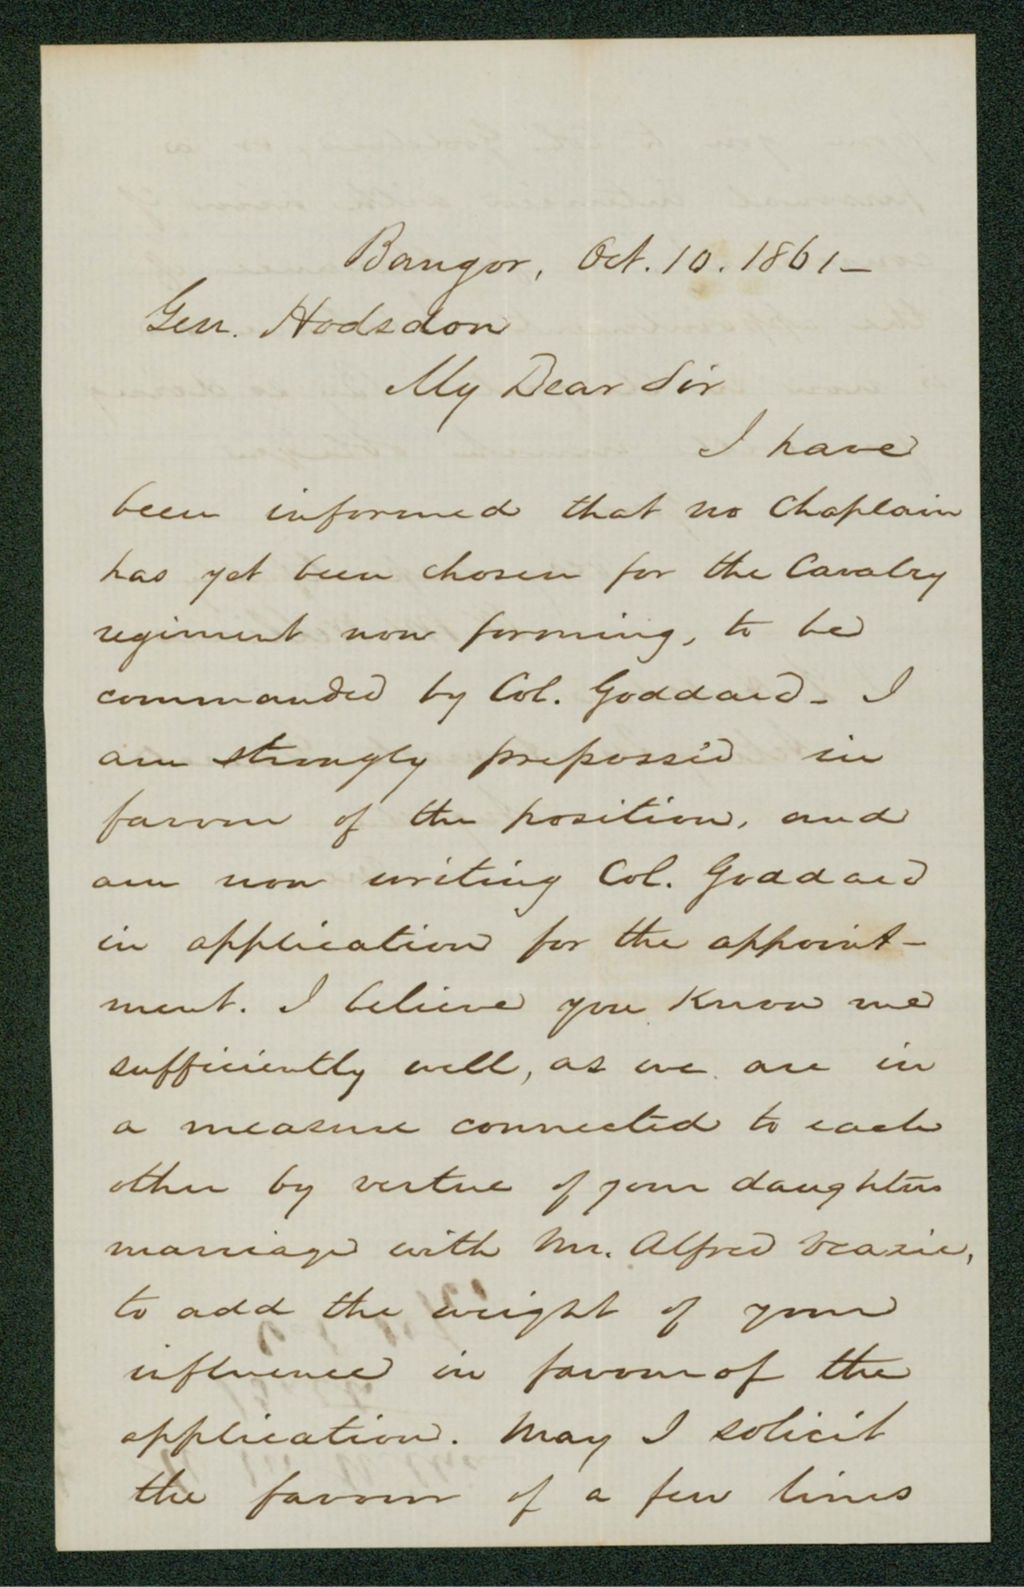 Bangor, Oct. 10. 1861 –
Gen. Hodsdon
My Dear Sir
I have
been informed that no Chaplain
has yet been chosen for the Cavalry
regiment now forming, to be
commanded by Col. Goddard – I
am strongly preposs'd in
favour of the position, and
am now writing Col. Goddard
in application for the appoint-
ment. I believe you Know me
sufficiently well, as we are in
a measure connected to each
other by vertue of your daughters
marriage with Mr. Alfred Veazie,
to add the weight of your
influence in favour of the
application. May I solicit
the favour of a few lines